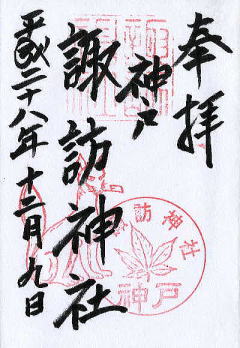 奉拝
神戸
諏訪神社
平成二十八年十二月九日
諏訪神社
神戸